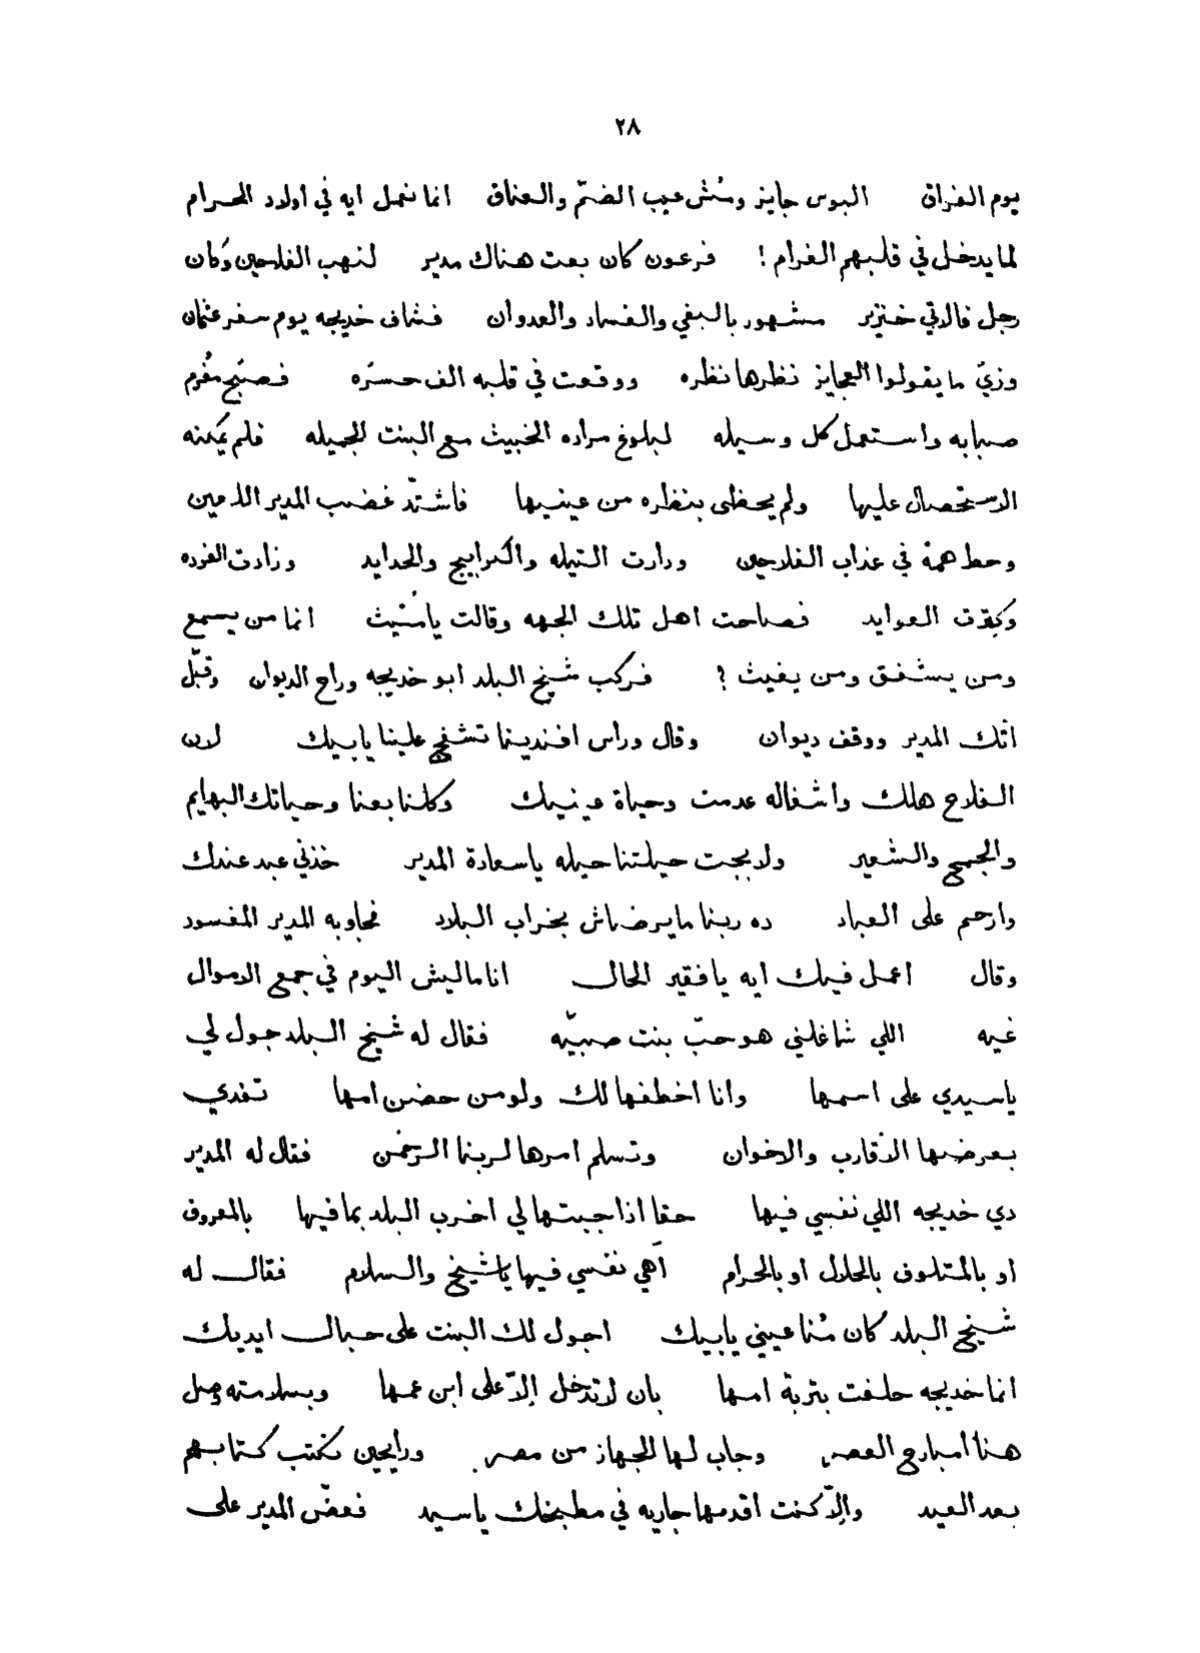 ٢٨
يوم الفراق البوس جايز ومُش عيب الضمّ والعناق انما نعمل ايه في اولاد الحرام
لما يدخل في قلبهم الغرام ! فرعون كان بعت هناك مدير لنهب الفلاحين وكان
رجل فالاتي خنزير مشهور بالبغي والفساد والعدوان فشاف خديجه يوم سفر عثمان
وزيّ ما يقولوا العجايز نظرها نظره ووقعت في قلبه الف حسره فصبّح مغُرم
صبابه واستعمل كل وسيله لبلوغ مراده الخبيث مع البنت الجميله فلم يمكنه
الاستحصال عليها ولم يحظى بنظره من عينيها فاشتدّ غضب المدير اللعين
وحط همهُ في عذاب الفلاحين ودارت التيله والكرابيج والحدايد وزادت الفرده
وكترت العوايد فصاحت اهل تلك الجهه وقالت يامُغيث انما من يسمع
ومن يشفق ومن يغيث ؟ فركب شيخ البلد ابو خديجه وراح الديوان وقبّل
اتك المدير ووقف ديوان وقال وراس افندينا تشفق علينا يا بيك لان
الفلاح هلك واشغاله عدمت وحياة عينيك وكلنا بعنا وحياتك البهايم
والجمح والشعير ولا بجت حيلتنا حيله ياسعادة المدير خذني عبد عندك
وارحم على العباد ده ربنا ما يرضاش بخراب البلاد فجاوبه المدير المفسود
وقال اعمل فيك ايه يا فقير الحال انا ماليش اليوم في جمع الاموال
غيه اللي شاغلني هو حبّ بنت صبيّه فقال له شيخ البلد جول لي
ياسيدي على اسمها وانا اخطفها لك ولو من حضن امها تفدي
بعرضها الاقارب والاخوان وتسلم امرها لربنا الرحمن فقال له المدير
دي خديجه اللي نفسي فيها حقا اذا جبتها لي اخرب البلد بما فيها بالمعروف
او بالمتلوف بالحلال او بالحرام آهي نفسي فيها ياشيخ والسلام فقال له
شيخ البلد كان مُنا عيني يا بيك اجول لك البنت على حبال ايديك
انما خديجه حلفت بتربة امها بان لا تدخل إلاّ على ابن عمها وبسلامته وصل
هنا امبارح العصر وجاب لها الجهاز من مصر ورايحين نكتب كتابهم
بعد العيد والاّ كنت اقدمها جاريه في مطبخك ياسيد فعضّ المدير على